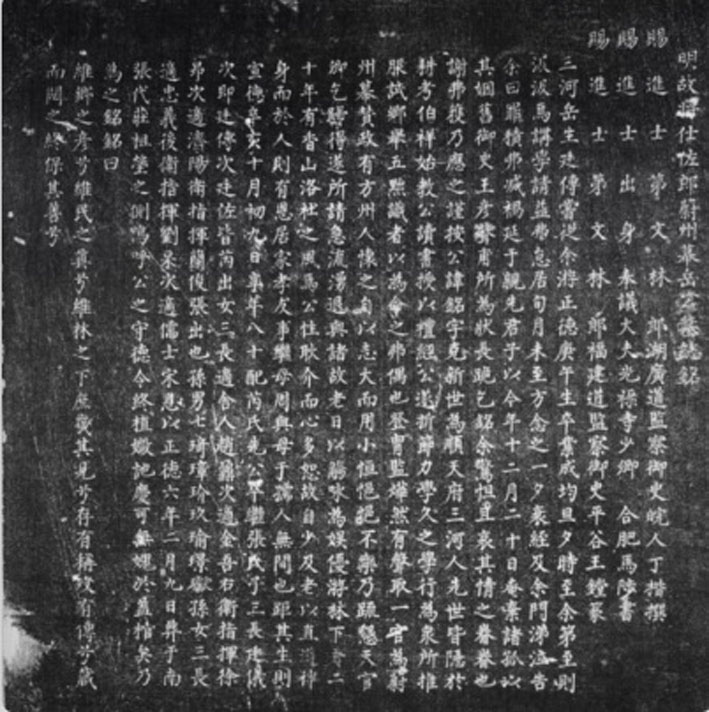 明故將仕佐郎蔚州幕岳公墓誌銘
賜進士第文林郎湖廣道監察御史皖人丁楷撰
賜進士出身奉議大夫光祿寺少卿合肥馬陵書
賜進士第文林郎福建道監察御史平谷王鐘篆
三河岳生廷傳嘗從余游正德庚午生卒業成均旦夕時至余第至則
汲汲焉講學請益弗怠居旬月未至方念之一夕衰絰及余門涕泣告
余曰罪積弗滅禍延于親先君子以今年十二月二十日奄棄諸孤以
其姻舊御史王彥甫所為狀長跪乞銘余驚怛且哀其情之眷眷也
謝弗獲乃應之謹按公諱銘字克新世為順天府三河人先世皆隱於
耕考伯祥始教公讀書授以禮經公遂折節力學久之學行為衆所推
服試鄉舉五黜識者以為命之弗偶也登胄監燁然有聲取一官為蔚
州幕贊政有方州人懷之自以志大而用小恒悒悒不樂乃疏懇天官
卿乞歸得遂所請急流湯退與諸故老日以觴咏為娛優游林下者二
十年有香山洛社之風焉公性耿介而心多恕故自少及老以直道持
身而於人則有恩居家孝友事繼母周與母于謫人無間也距其生則
宣德辛亥十月初九日享年八十配芮氏先公卒繼張氏子三長廷儀
次即廷傳次廷佐皆芮出女三長適舍人趙鼐次適金吾右衛指揮徐
昂次適瀋陽衛指揮關俊張出也孫男七琦璋瑜玖瑜璟孫女三長
適忠義後衛指揮劉杲次適儒士宋恩以正德六年二月九日葬于南
張代莊祖塋之側嗚呼公之守德令終植嫩地慶可無媿於蓋棺矣乃
為之銘銘曰
維鄉之彥兮維民之真兮維林之下庶幾其見兮存有稱歿有傳兮歲
而閱之終保其善兮